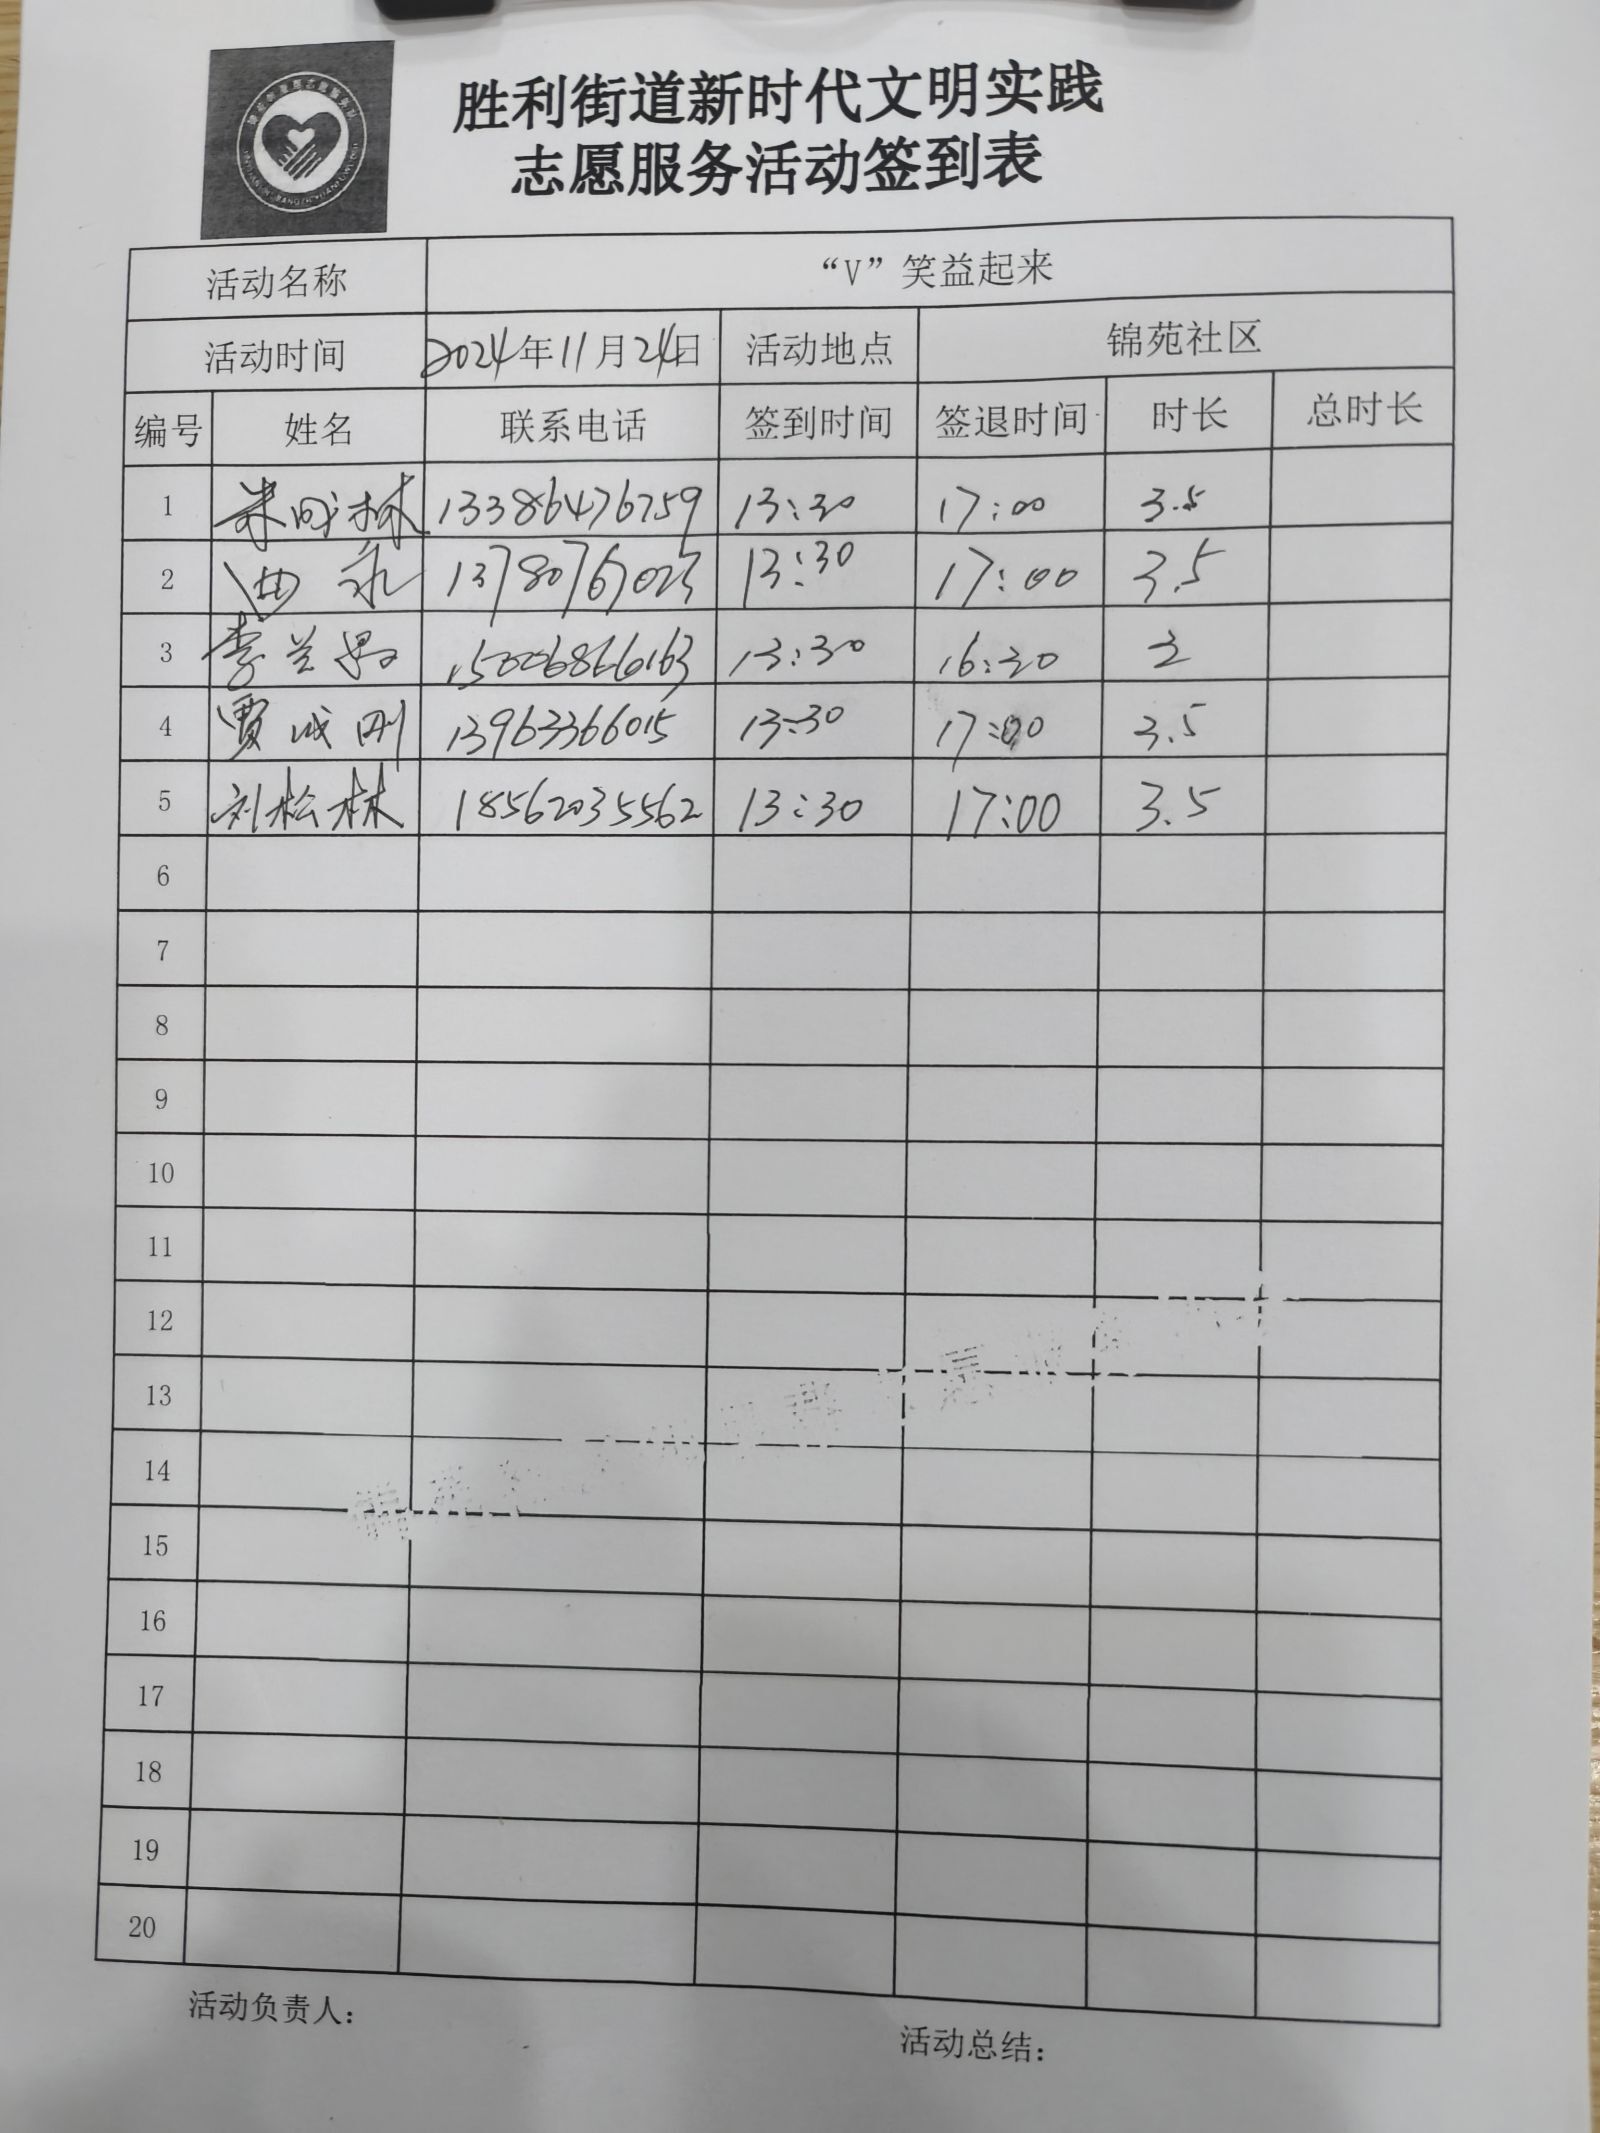 胜利街道新时代文明实践
志愿服务活动签到表
活动名称 “V”笑益起来
活动时间 2024年11月24日 活动地点 锦苑社区
编号 姓名 联系电话 签到时间 签退时间 时长 总时长
1 林 13386476759 13:30 17:00 3.5
2 曲永 13780767023 13:30 17:00 3.5
3 李兰 15006866163 13:30 16:30 3
4 贾成刚 13963366015 13:30 17:00 3.5
5 刘松林 18562035562 13:30 17:00 3.5
6
7
8
9
10
11
12
13
14
15
16
17
18
19
20
活动负责人：
活动总结：